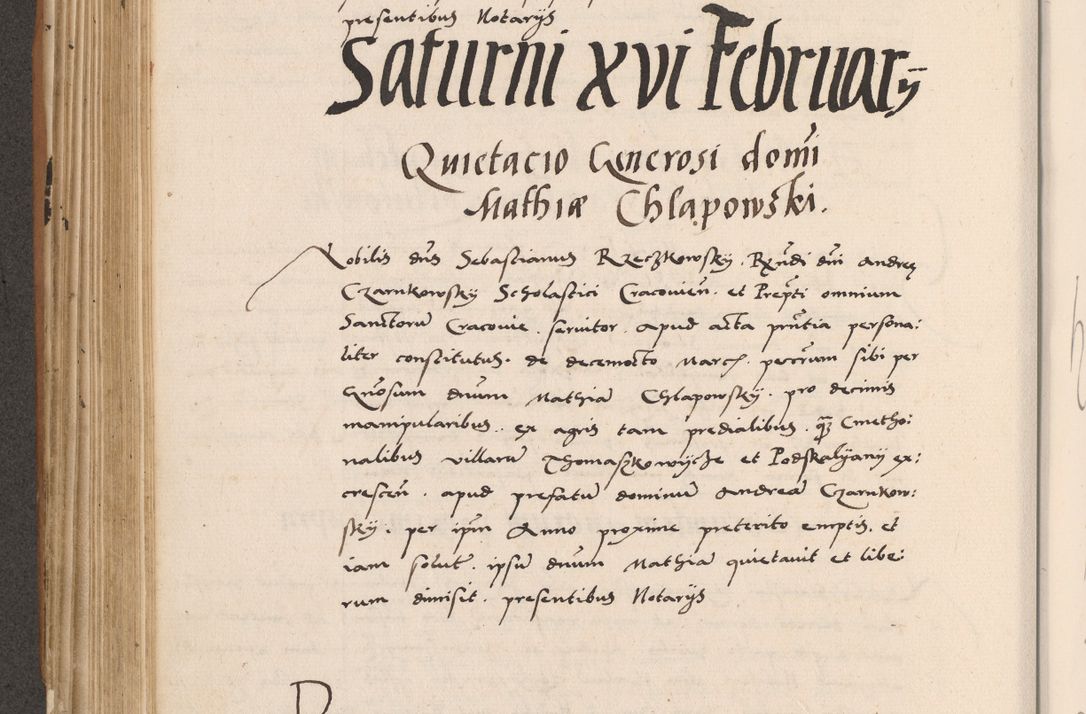 presentibus Notarijs
Saturni xvi Februarij
Quietacio Generosi domi
Mathiæ Chlapowski.
Nobilis dns Sebastianus Rzeczkowsky. Rndi dni Andreę
Czarnkowsky Scholastici Cracovien. et Prepti omnium
Sanctoru Cracovie. servitor. apud acta pntia persona:
liter constitutus. de decemocto March. peccrum sibi per
Gnosum dnum Mathia Chlapowsky. pro decimis
manipularibus. ex agris tam predialibus. qz Cmetho:
nalibus villaru Thomaszkowijcze et Podskalyanij ex:
crescen. apud prefatu dominu Andrea Czarnkow:
sky. per ipm Anno proxime preterito emptis. et
iam solut. ipsu dnum Mathia quietavit et libe:
rum dimisit. presentibus Notarijs